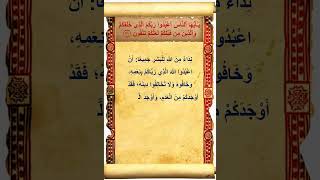 يَٰٓأَيُّهَا ٱلنَّاسُ ٱعْبُدُوا۟ رَبَّكُمُ ٱلَّذِى خَلَقَكُمْ
وَٱلَّذِينَ مِن قَبْلِكُمْ لَعَلَّكُمْ تَتَّقُونَ
نِدَاءٌ مِنَ اللهِ لِلْبَشَرِ جَمِيعًا: أَنْ
اعْبُدُوا اللهَ الَّذِي رَبَّاكُمْ بِنِعَمِهِ،
وَخَافُوهُ وَلَا تُخَالِفُوا دِينَهُ؛ فَقَدْ
أَوْجَدَكُمْ مِنَ الْعَدَمِ، وَأَوْجَدَ الْـ